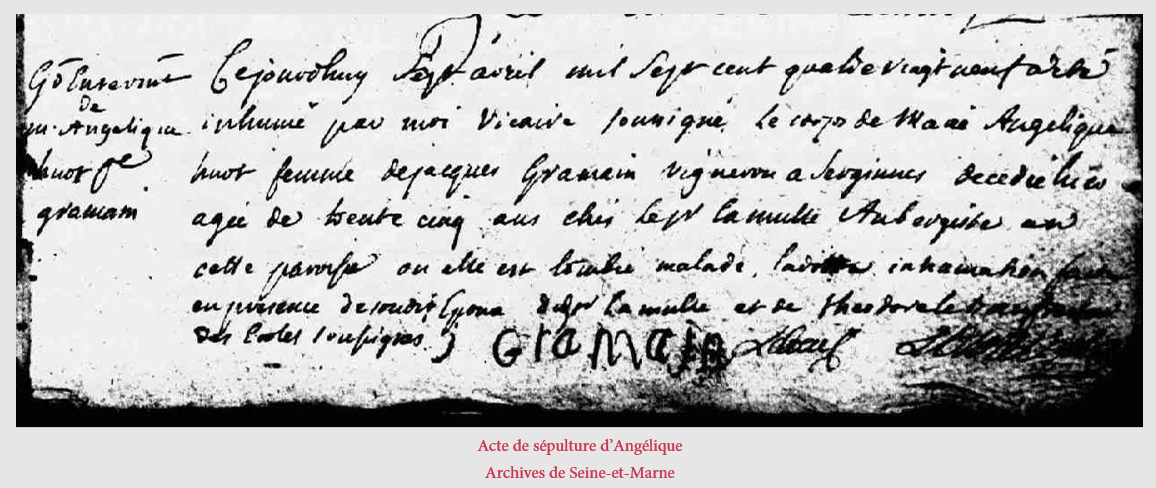 Gd Enterrmt
de
m. Angelique
huot fe
gramain
Cejourdhuy Sept avril mil Sept cent quatrevingt neuf a été
inhumé par moi Vicaire soussigné, le corps de Marie Angelique
huot femme dejacques Gramain vigneron a Serginnes decedée hier
agée de trente cinq ans chés le Sr lamulle Aubergiste en
cette paroisse ou elle est tombée malade, ladite inhumation faite
en présence de soudit Epoux dudt Sr lamulle et de theodore
des Ecoles soussignés
Gramain
Acte de sépulture d'Angélique
Archives de Seine-et-Marne